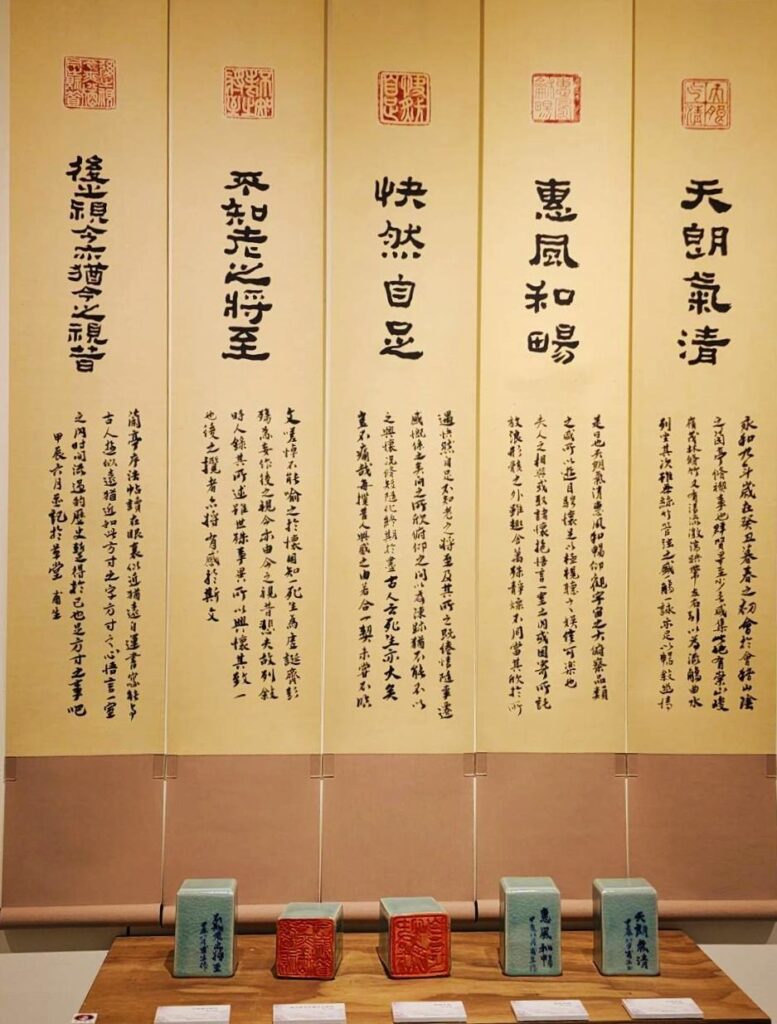 天朗氣清
永和九年歲在癸丑暮春之初會於會稽山陰
之蘭亭脩禊事也群賢畢至少長咸集此地有崇山峻
嶺茂林脩竹又有清流激湍映帶左右引以為流觴曲水
列坐其次雖無絲竹管弦之盛一觴一詠亦足以暢敘幽情
惠風和暢
是日也天朗氣清惠風和暢仰觀宇宙之大俯察品類
之盛所以遊目騁懷足以極視聽之娛信可樂也
夫人之相與或取諸懷抱悟言一室之內或因寄所託
放浪形骸之外雖趣舍萬殊靜躁不同當其欣於所
快然自足
遇快然自足不知老之將至及其所之既倦情隨事遷
感慨係之矣向之所欣俯仰之間以為陳跡猶不能不以
之興懷況修短隨化終期於盡古人云死生亦大矣
豈不痛哉每攬昔人興感之由若合一契未嘗不臨
不知老之將至
文嗟悼不能喻之於懷固知一死生為虛誕齊彭
殤為妄作後之視今亦由今之視昔悲夫故列敘
時人錄其所述雖世殊事異所以興懷其致一
也後之攬者亦將有感於斯文
後之視今亦猶今之視昔
蘭亭序法帖讀在眼裏似近猶遠自運書寫能與
古人遊似遠猶近知此方寸之字方寸之心悟言一室
之內時間流過的歷史得於己也是方寸之事吧
甲辰六月並記於草堂 甫生
天朗氣清
甲辰八月甫生作
惠風和暢
甲辰八月甫生作
不知老之將至
甲辰八月甫生作